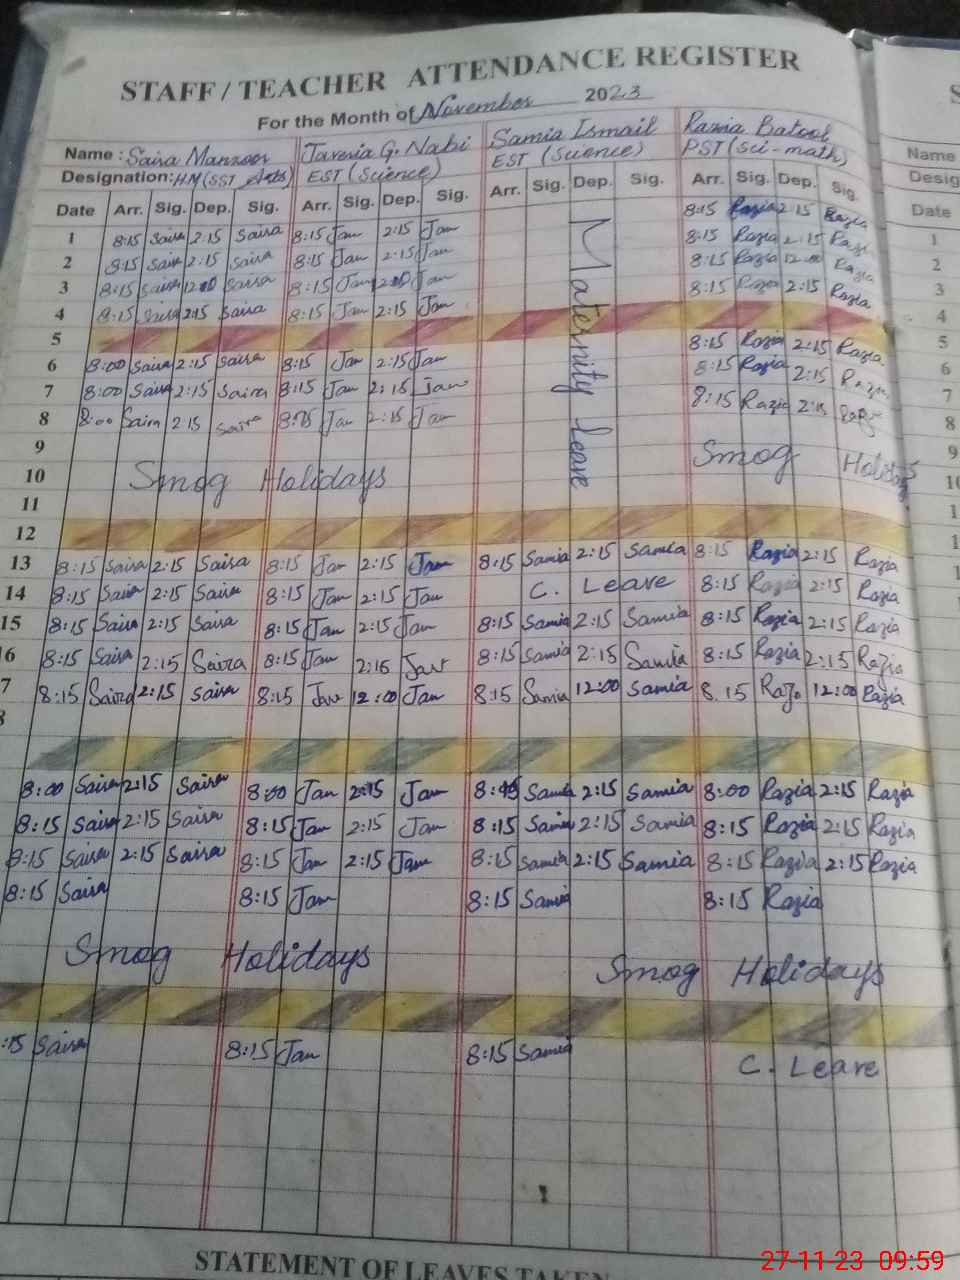 STAFF / TEACHER ATTENDANCE REGISTER
For the Month of November 2023
Name : Saira Manzoor Javeria G. Nabi Samia Ismail Razia Batool
Designation: HM (SST Arts) EST (Science) EST (Science) PST (Sci-math)
Date Arr. Sig. Dep. Sig. Arr. Sig. Dep. Sig. Arr. Sig. Dep. Sig. Arr. Sig. Dep. Sig.
Maternity leave
1 8:15 Saira 2:15 Saira 8:15 Jan 2:15 Jan 8:15 Razia 2:15 Razia
2 8:15 Saira 2:15 Saira 8:15 Jan 2:15 Jan 8:15 Razia 2:15 Razia
3 8:15 Saira 12:00 Saira 8:15 Jan 12:00 Jan 8:15 Razia 12:00 Razia
4 8:15 Saira 2:15 Saira 8:15 Jan 2:15 Jan 8:15 Razia 2:15 Razia
5
6 8:00 Saira 2:15 Saira 8:15 Jan 2:15 Jan 8:15 Razia 2:15 Razia
7 8:00 Saira 2:15 Saira 8:15 Jan 2:15 Jan 8:15 Razia 2:15 Razia
8 8:00 Saira 2:15 Saira 8:15 Jan 2:15 Jan 8:15 Razia 2:15 Razia
9
10 Smog Holidays Smog Holidays
11
12
13 8:15 Saira 2:15 Saira 8:15 Jan 2:15 Jan 8:15 Samia 2:15 Samia 8:15 Razia 2:15 Razia
14 8:15 Saira 2:15 Saira 8:15 Jan 2:15 Jan C. Leave 8:15 Razia 2:15 Razia
15 8:15 Saira 2:15 Saira 8:15 Jan 2:15 Jan 8:15 Samia 2:15 Samia 8:15 Razia 2:15 Razia
6 8:15 Saira 2:15 Saira 8:15 Jan 2:15 Jan 8:15 Samia 2:15 Samia 8:15 Razia 2:15 Razia
7 8:15 Saira 2:15 Saira 8:15 Jan 12:00 Jan 8:15 Samia 12:00 Samia 8.15 Razia 12:00 Razia
8:00 Saira 2:15 Saira 8:00 Jan 2:15 Jan 8:15 Samia 2:15 Samia 8:00 Razia 2:15 Razia
8:15 Saira 2:15 Saira 8:15 Jan 2:15 Jan 8:15 Samia 2:15 Samia 8:15 Razia 2:15 Razia
8:15 Saira 2:15 Saira 8:15 Jan 2:15 Jan 8:15 Samia 2:15 Samia 8:15 Razia 2:15 Razia
8:15 Saira 8:15 Jan 8:15 Samia 8:15 Razia
Smog Holidays Smog Holidays
:15 Saira 8:15 Jan 8:15 Samia C. Leave
STATEMENT OF LEAVES TAKEN
Name
Desig
Date
1
2
3
4
5
6
7
8
9
10
27-11-23 09:59